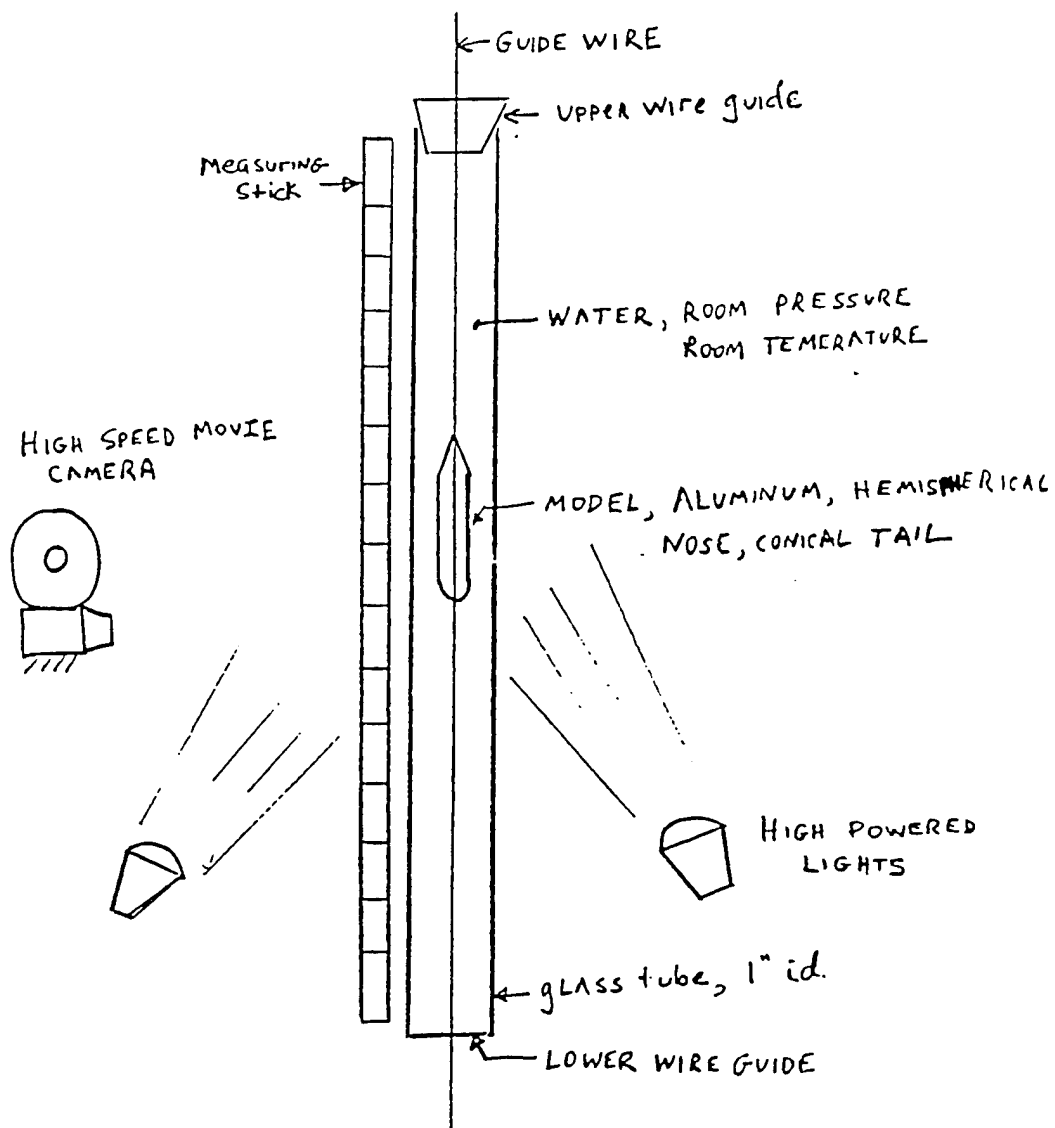 GUIDE WIRE
UPPER WIRE GUIDE
MEASURING
STICK
WATER, ROOM PRESSURE
ROOM TEMERATURE
HIGH SPEED MOVIE
CAMERA
MODEL, ALUMINUM, HEMISPHERICAL
NOSE, CONICAL TAIL
HIGH POWERED
LIGHTS
GLASS tube, 1" id.
LOWER WIRE GUIDE